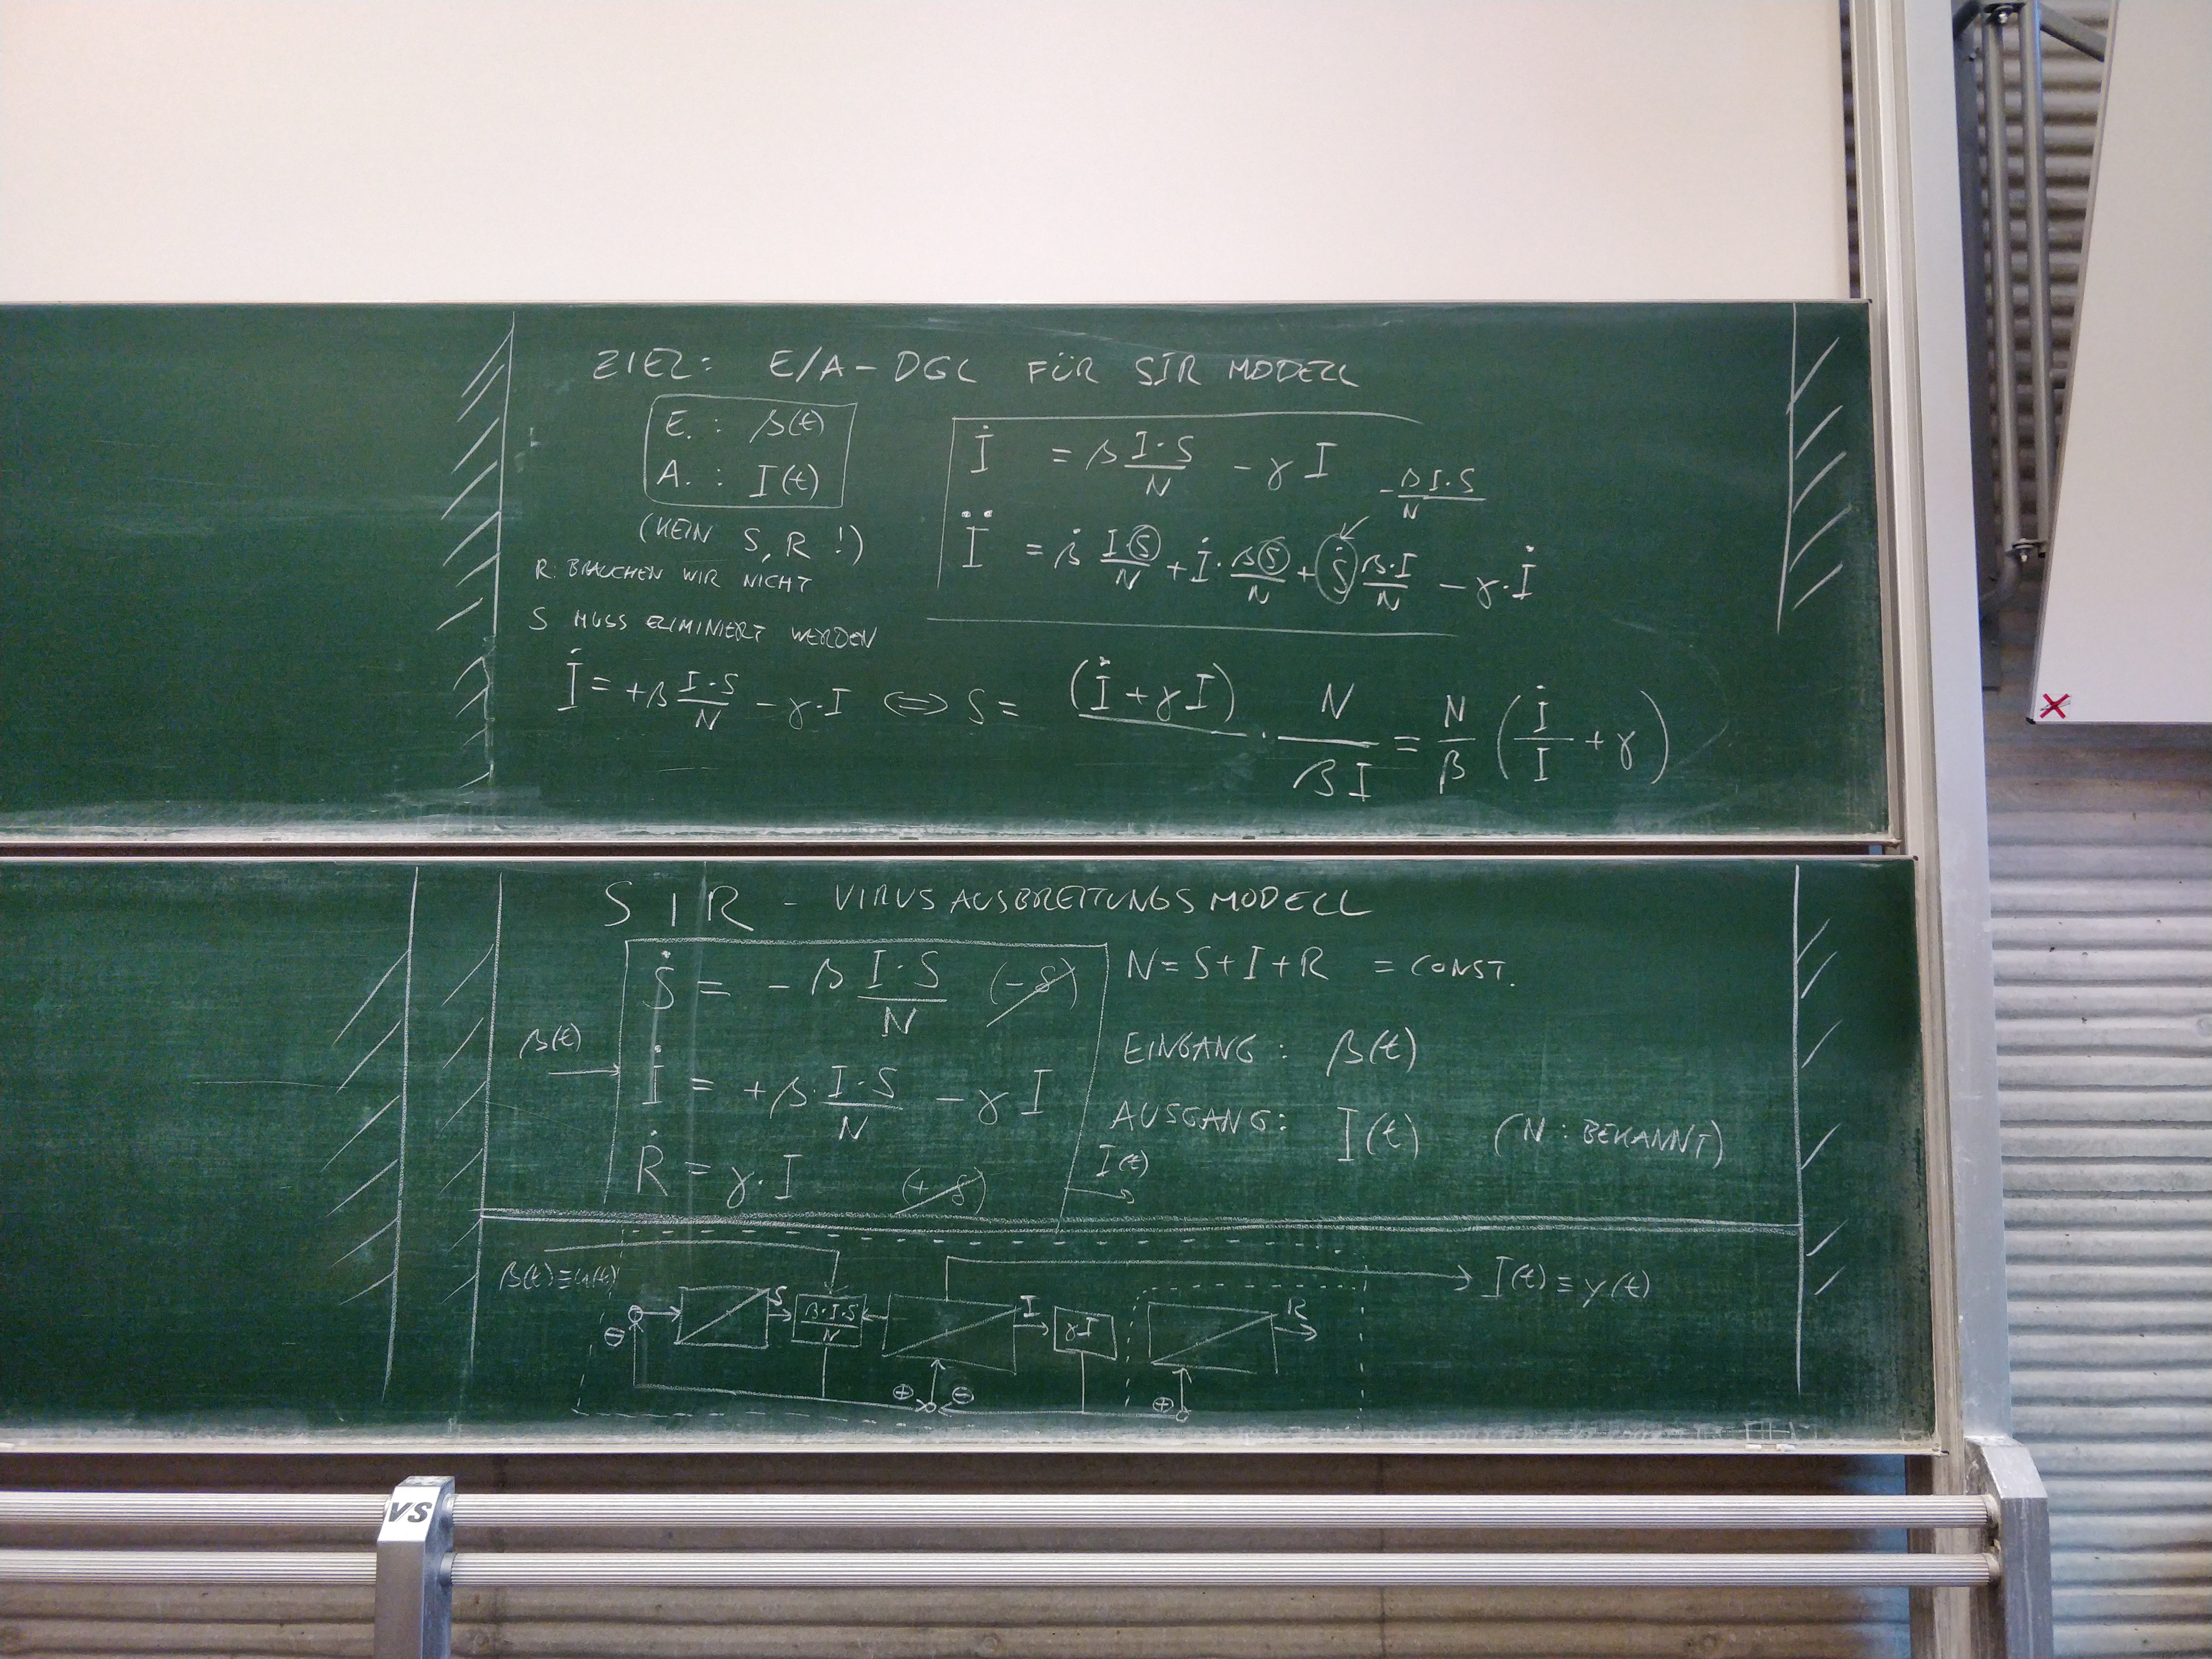 ZIEL: E/A-DGL FÜR SIR MODELL
E. : β(t)
A. : I(t)
(KEIN S, R !)
R: BRAUCHEN WIR NICHT
S MUSS ELIMINIERT WERDEN
İ = β (I·S)/N - γ I
- (β I·S)/N
Ï = β̇ (I·S)/N + İ · (β S)/N + Ṡ (β·I)/N - γ·İ
İ = +β (I·S)/N - γ·I ⇔ S = (İ + γ I) · N/(β I) = N/β (İ/I + γ)
SIR - VIRUSAUSBREITUNGSMODELL
Ṡ = - β (I·S)/N (-δ)
N = S+I+R = CONST.
β(t)
İ = +β· (I·S)/N - γ I
EINGANG : β(t)
Ṙ = γ·I (+δ)
AUSGANG: I(t) (N : BEKANNT)
I(t)
β(t)≡u(t)
I(t) ≡ y(t)
⊖ S (β·I·S)/N I γI R
⊕ ⊖ ⊕
VS